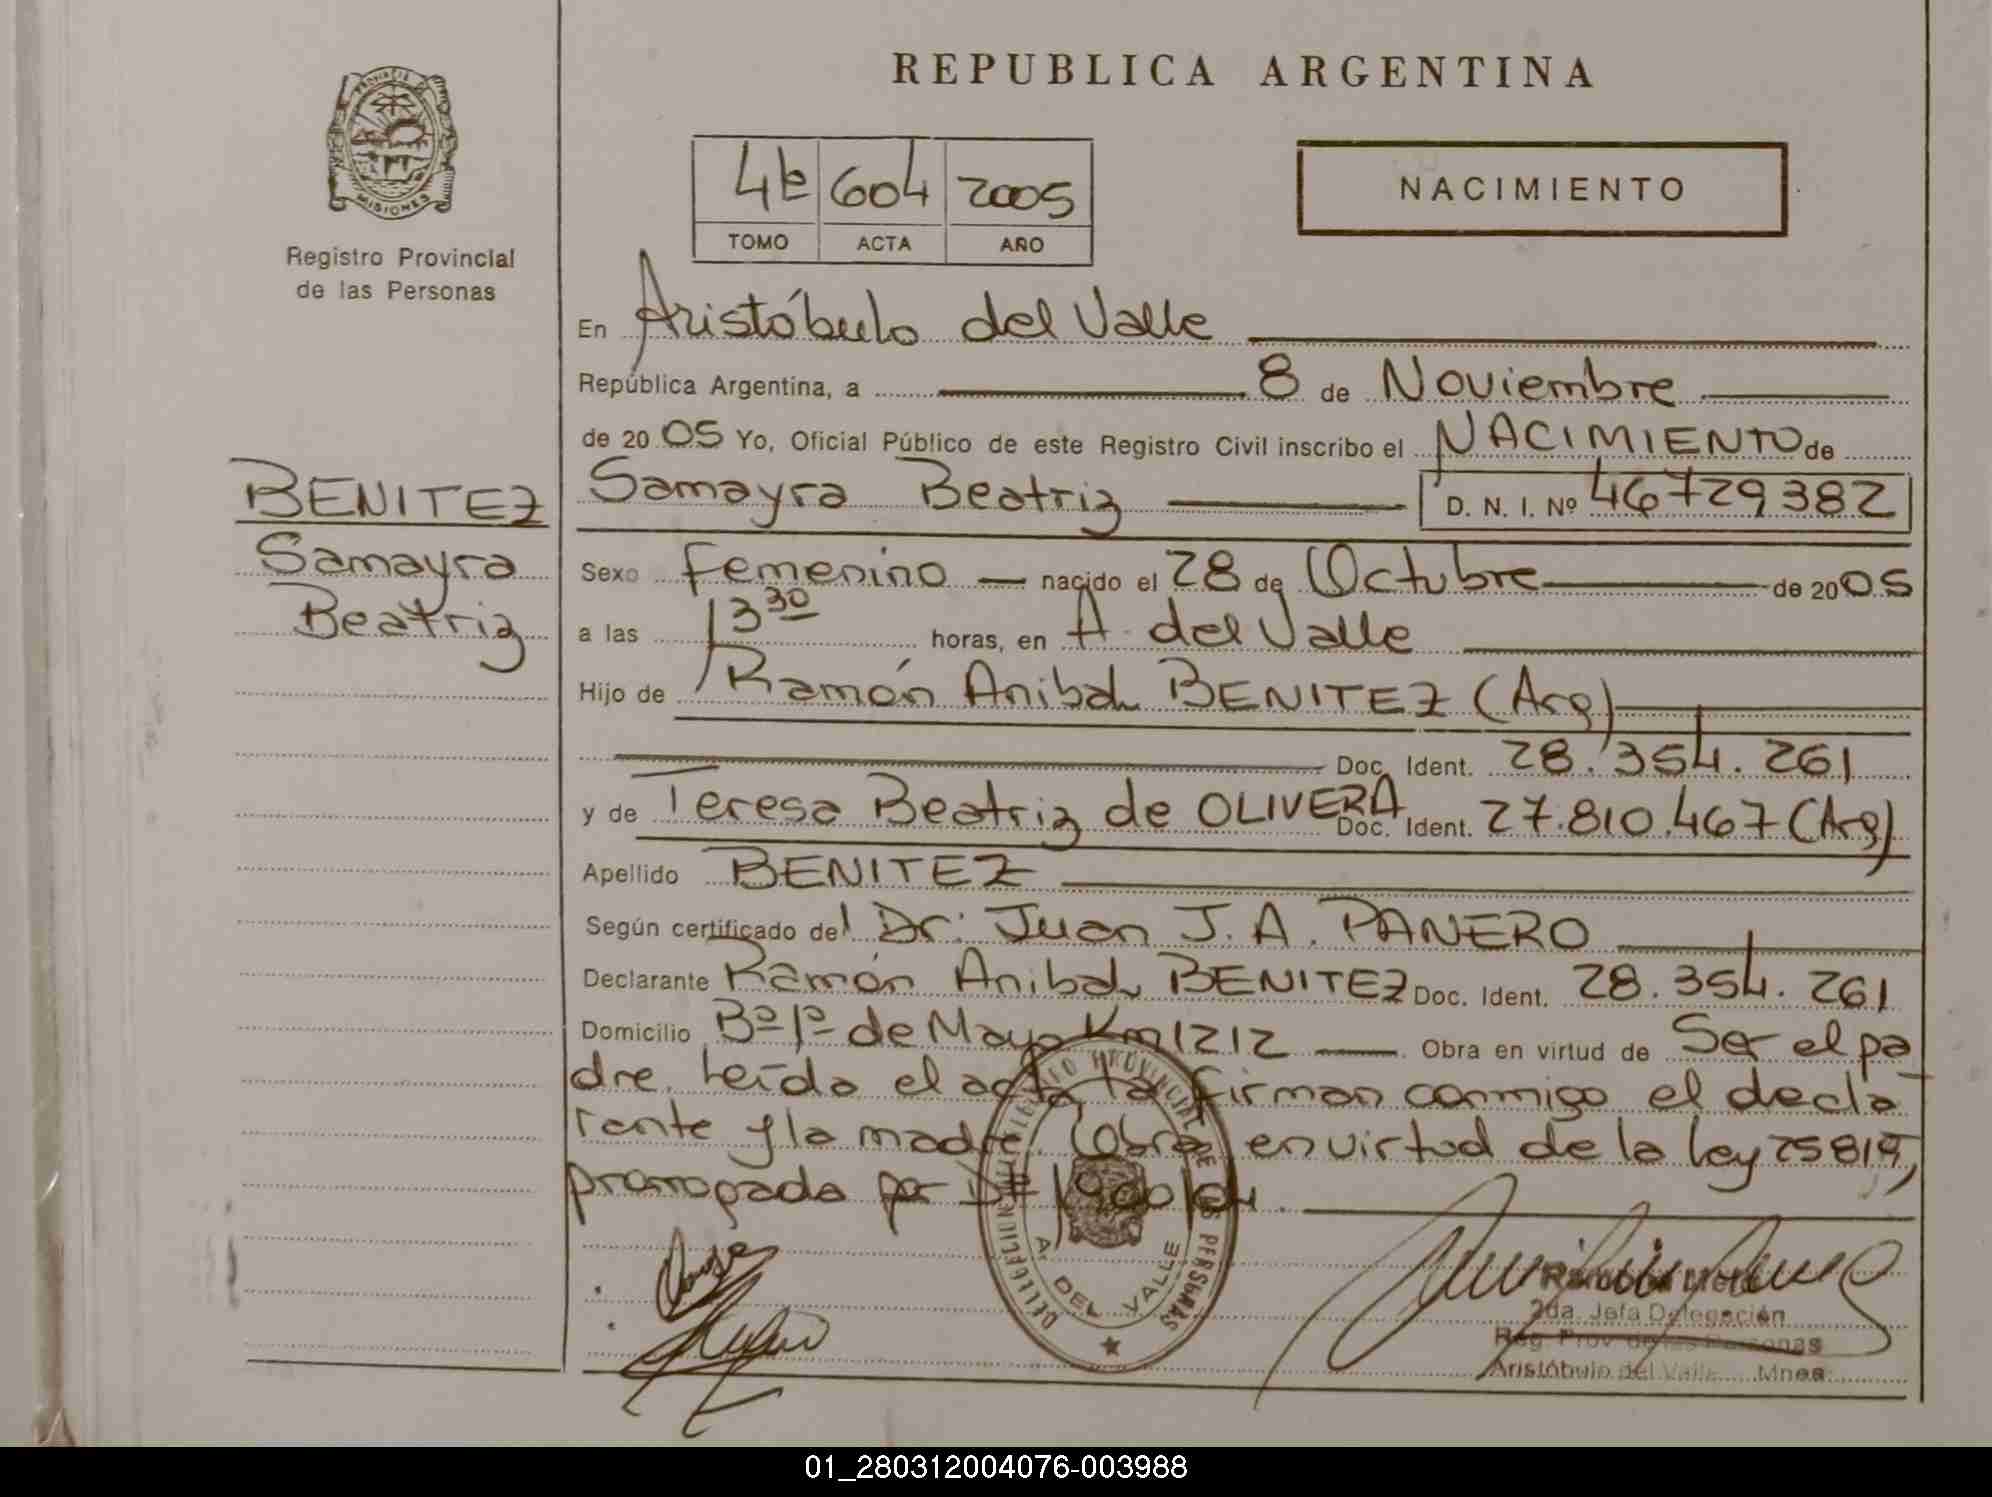 REPUBLICA ARGENTINA
PROVINCIA DE MISIONES
Registro Provincial
de las Personas
4b 604 2005
TOMO ACTA AÑO
NACIMIENTO
BENITEZ
Samayra
Beatriz
En Aristóbulo del Valle
República Argentina, a 8 de Noviembre
de 2005 Yo, Oficial Público de este Registro Civil inscribo el NACIMIENTO de
Samayra Beatriz D. N. I. Nº 46729382
Sexo Femenino nacido el 28 de Octubre de 2005
a las 13 30 horas, en A. del Valle
Hijo de Ramón Anibal BENITEZ (Arg)
Doc. Ident. 28.354.261
y de Teresa Beatriz de OLIVERA Doc. Ident. 27.810.467 (Arg)
Apellido BENITEZ
Según certificado del Dr. Juan J. A. PANERO
Declarante Ramón Anibal BENITEZ Doc. Ident. 28.354.261
Domicilio Bº 1º de Mayo Km 1212 Obra en virtud de Ser el pa
dre. Leída el acta la firman conmigo el decla
rante y la madre. Obra en virtud de la Ley 25819,
prorrogada por 1900/04.
REGISTRO PROVINCIAL DE LAS PERSONAS
A. DEL VALLE
2da. Jefa Delegación
Reg. Prov. de las Personas
Aristóbulo del Valle Mnes.
01_280312004076-003988